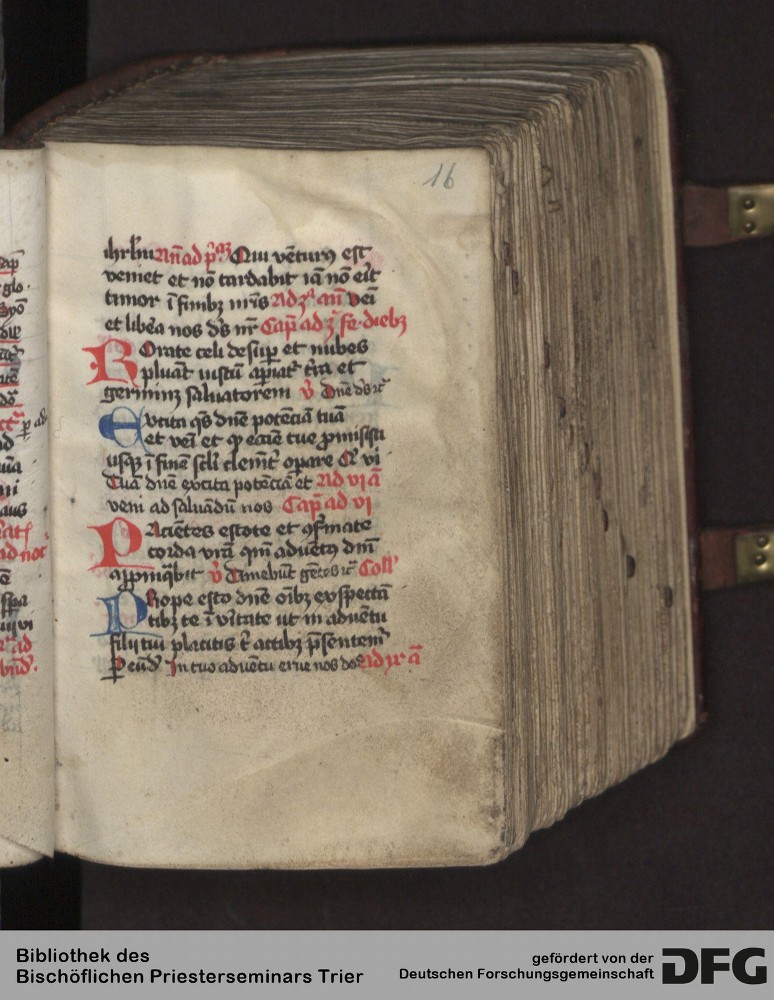 16
ihrl̄m Añ ad p̄ᵃᵐ Qui vētur⁹ est
veniet et nō tardabit iā nō eīt
timor ī finibꝫ nr̄is Ad ꝫᵃ añ veī
et libēa nos d̄s nr̄ Cap̄ ad ꝫ fe diebꝫ
Rorate celi desuꝑ et nubes
pluāt iustū aꝑiat᷑ t̄ra et
germinꝫ saluatorem v̄ Dn̄e d̄s ⁊c̄
Excita q̄s dn̄e potēciā tuā
et veī et qͥ ecc̄ie tue ꝓmisisti
usqꝫ ī finē sc̄li clemēt᷑ opare
Tuā dn̄e excita potēciā et Ad vi ā
veni ad saluādū nos Cap̄ ad vi
Paciētes estote et ꝯfirmate
corda vrā qm̄ aduēt⁹ dn̄i
aꝓpinq̄bit v̄ Timebūt gētes ⁊c̄ Coll'
Prope esto dn̄e oībꝫ exspectā
tibꝫ te ī v̄itate ut in aduētu
filij tui placitis t̄ actibꝫ p̄sentem᷑
Ꝑ eūdē In tuo aduētu erue nos do Ad ix ā
Bibliothek des
Bischöflichen Priesterseminars Trier
gefördert von der
Deutschen Forschungsgemeinschaft
DFG